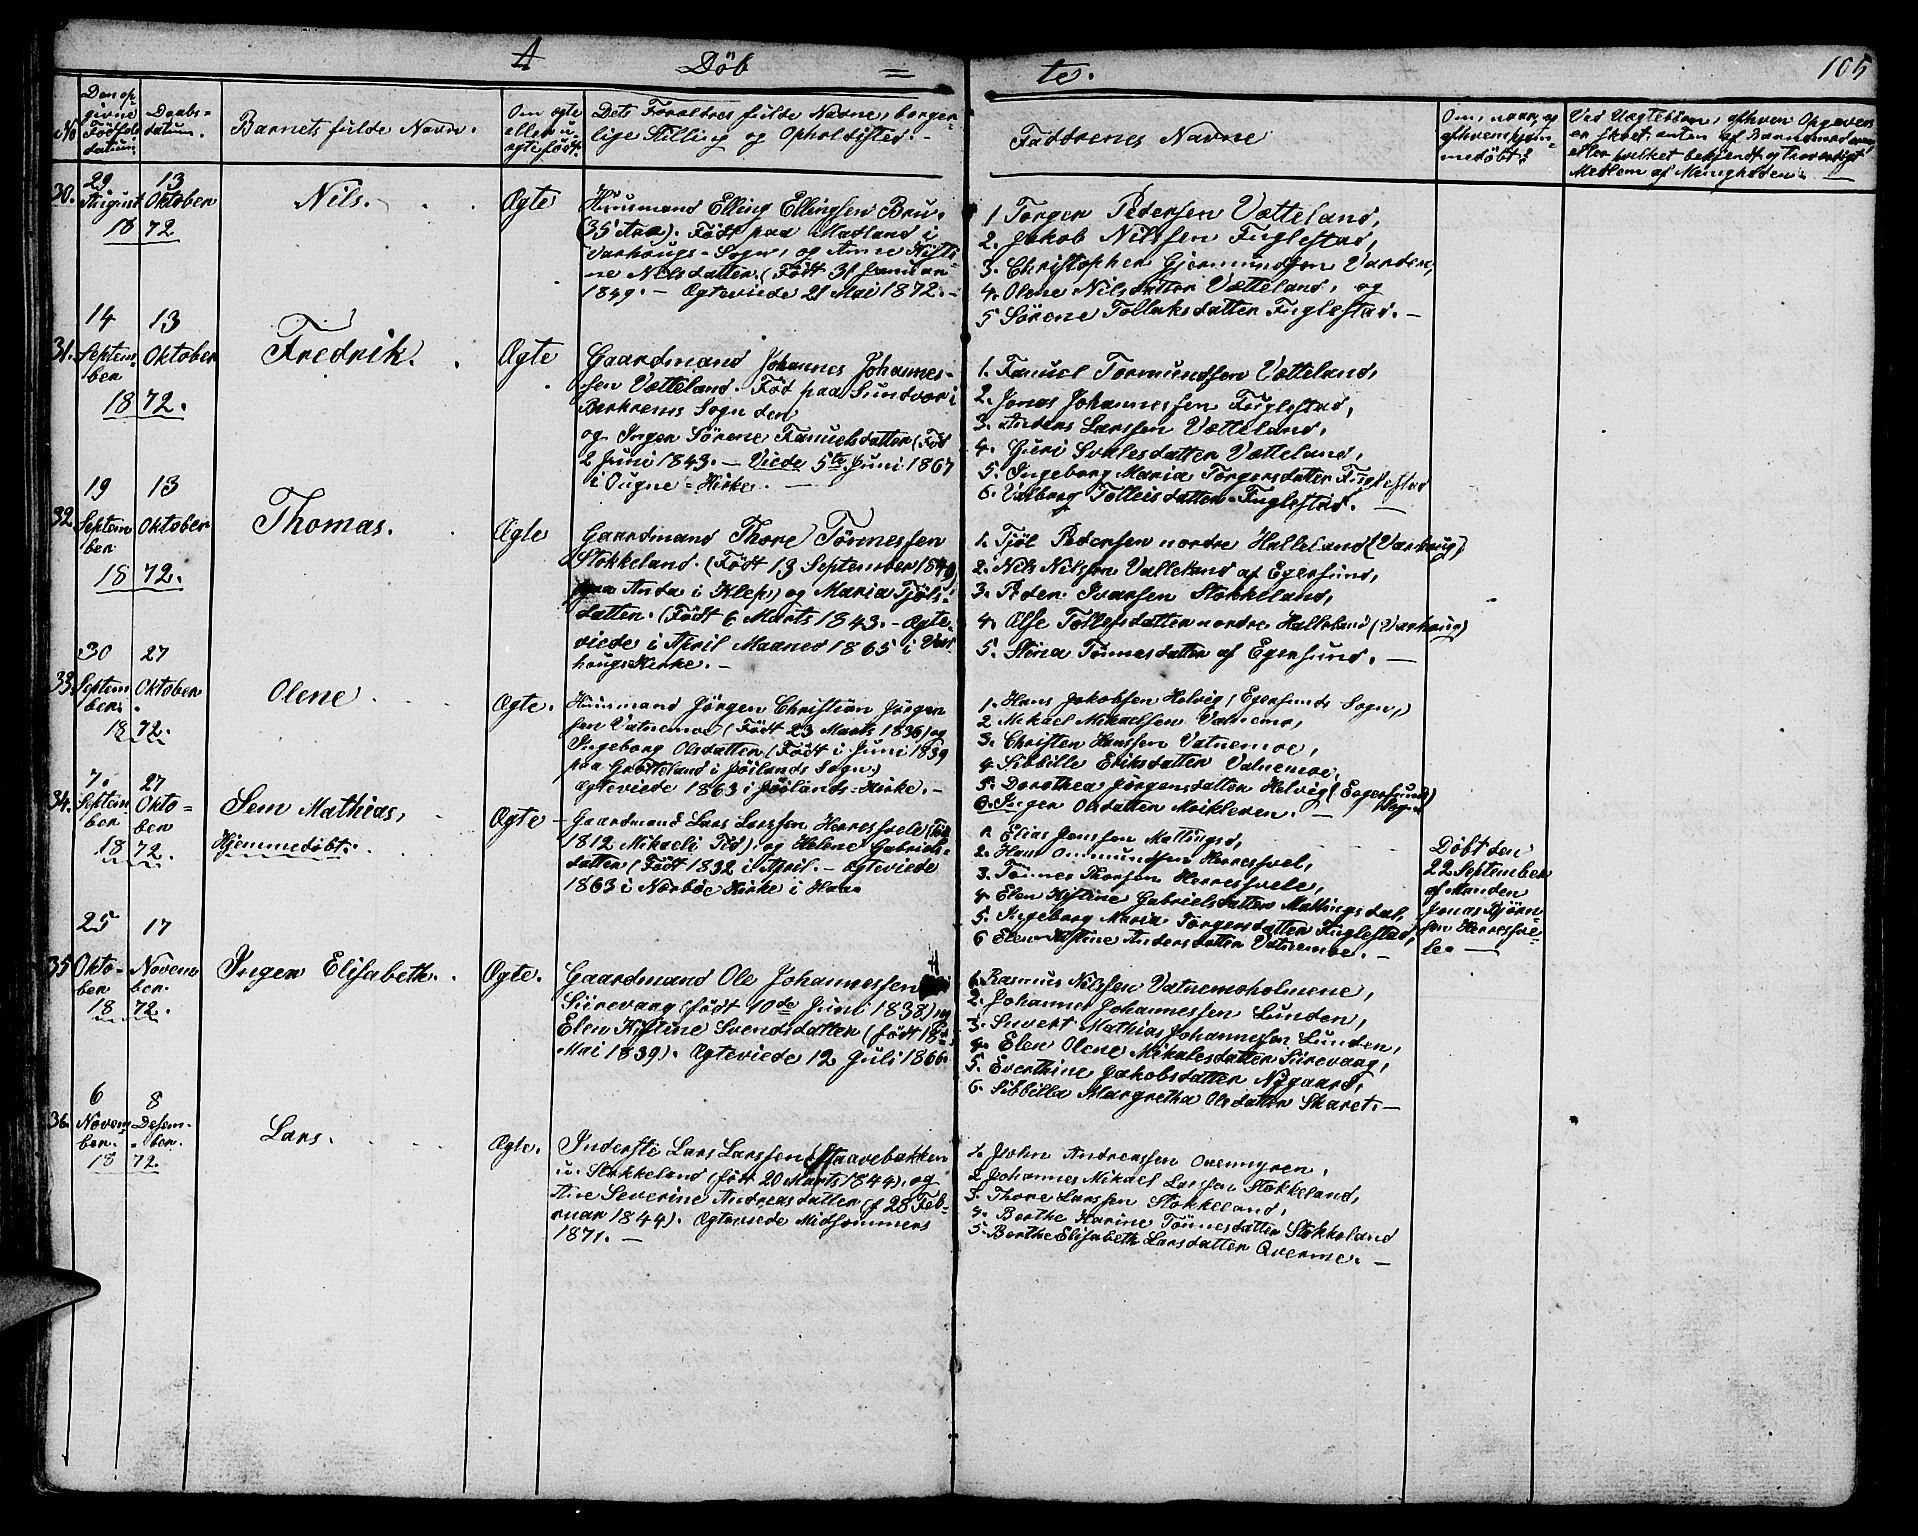 A
Döb = te.
105
No
Den op-
givne
Födsels
datum.
Daabs-
datum.
Barnets fulde Navn.
Om ægte
eller u-
ægtefödt.
Dets Foraldres fulde Navne, borger-
lige Stilling og Opholdssted.
Faddrenes Navne
Om, naar, og
afhvem hjem-
medöbt?
Ved Uægtebörn, afhvem Opgaven
er skeet, enten af Barnemoderen,
eller hvilket bekjendt og troværdigt
Medlem af Menigheden.
30.
29
August
13
Oktober
18 72
Nils.
Ægte
Huusmand Elling Ellingsen Bru.
(35 Aar). Födt paa Madland i
Varhougs-Sogn, og Anne Kisti-
ne Nilsdatter. (Födt 31 Januar
1849. — Ægteviede 21 Mai 1872. —
1 Torger Pedersen Vætteland,
2. Jakob Nilssen Fuglestad,
3. Christopher Gjermundsen Varden,
4. Olene Nilsdatter Vætteland, og
5 Sörene Tollaksdatter Fuglestad. —
31.
14
Septem-
ber
13
Oktober
18 72.
Fredrik.
Ægte
Gaardmand Johannes Johannes-
sen Vætteland. Föd paa Sundvor i
Berkrems Sogn den
og Inger Sörene Fanuelsdatter (Föd
2 Juni 1843. — Viede 5te Juni 1867
i Ougne-Kirke. —
1. Fanuel Tormundsen Vætteland,
2. Jonas Johannessen Fuglestad,
3. Anders Larssen Vætteland,
4. Guri Svalesdatter Vætteland,
5. Ingeborg Maria Torgersdatter Fuglestad
6. Valborg Tolleisdatter Fuglestad. —
32
19
Septem
ber
13
Oktober
18 72.
Thomas.
Ægte
Gaardmand Thore Tönnessen
Stokkeland. (Födt 13 September 1840)
paa Anda i Klep) og Maria Tjöls-
datter. (Födt 6 Marts 1843. — Ægte-
viede i April Maaned 1865 i Var-
hougs Kirke. —
1. Tjöl Pedersen nordre Halleland (Varhoug)
2. Nils Nilssen Valleland af Egersund,
3. Peder Ivarsen Stokkeland,
4. Else Tollefsdatter nordre Halleland (Varhoug)
5. Stina Tönnesdatter af Egersund. —
33.
30
Septem
ber.
27
Oktober
18 72.
Olene
Ægte.
Huusmand Jörgen Christian Jörgen
sen Vatnemoe (Födt 23 Marts 1836) og
Ingeborg Olsdatter (Födt i Juni 1839
paa Grötteland i Jöilands Sogn.)
Ægteviede 1863 i Jöilands-Kirke. —
1. Hans Jakobsen Helvig (Egersunds Sogn,)
2 Mikael Mikaelsen Vatnemo,
3. Christen Hanssen Vatnemoe,
4 Sibbille Eriksdatter Vatnemoe,
5. Dorothea Jörgensdatter Helvig (Egersund
Sogn)
6. Inger Olsdatter Meikleren. —
34.
7.
Septem-
ber
27
Okto-
ber
18 72.
Sem Mathias,
Hjemmedöbt.
Ægte
Gaardmand Lars Larssen Herresvele (Föd
1812 Mikaeli Tid). og Helene Gabriels-
datter (Födt 1832 i April. — Ægteviede
1863 i Nærböe Kirke i Haa-
1. Elias Jonssen Mattingsd,
2. Hans Ommundsen Herresvel,
3. Tönnes Thorsen Herresvele,
4. Elen Kistine Gabrielsdatter Mattingsdal,
5. Ingeborg Maria Torgersdatter Fuglestad,
6 Elen Kistine Andersdatter Vatnemoe. —
Döbt den
22 September
af Manden
Jonas Björn-
sen Herresve-
le. —
35
25
Okto-
ber
17
Novem
ber.
18 72.
Inger Elisabeth.
Ægte.
Gaardmand Ole Johannessen
Siirevaag (födt 10de Juni 1838) og
Elen Kistine Svendsdatter (födt 18
Mai 1839). Ægteviede 12 Juli 1866.
1. Rasmus Nilssen Vatnemoholmene,
2. Johannes Johannessen Lunden,
3. Sivert Mathias Johannessen Lunden,
4. Elen Olene Mikalesdatter Siirevaag,
5. Everthine Jakobsdatter Nygaard,
6. Sibbilla Margretha Olsdatter Skaret. —
36.
6
Novem-
ber.
8
Desem-
ber.
18 72
Lars.
Ægte.
Inderste Lars Larssen Staavebakken
u. Stokkeland (föt 20 Marts 1844). og
Ane Severine Andreasdatter (f 28 Feb-
ruar 1844). Ægteviede Midsommers
1871. —
1. John Andreassen Ovenmyren,
2 Johannes Mikael Larssen Stokkeland,
3. Thore Larssen Stokkeland,
4. Berthe Karine Tönnesdatter Stokkeland
5. Berthe Elisabeth Larsdatter Qverme. —